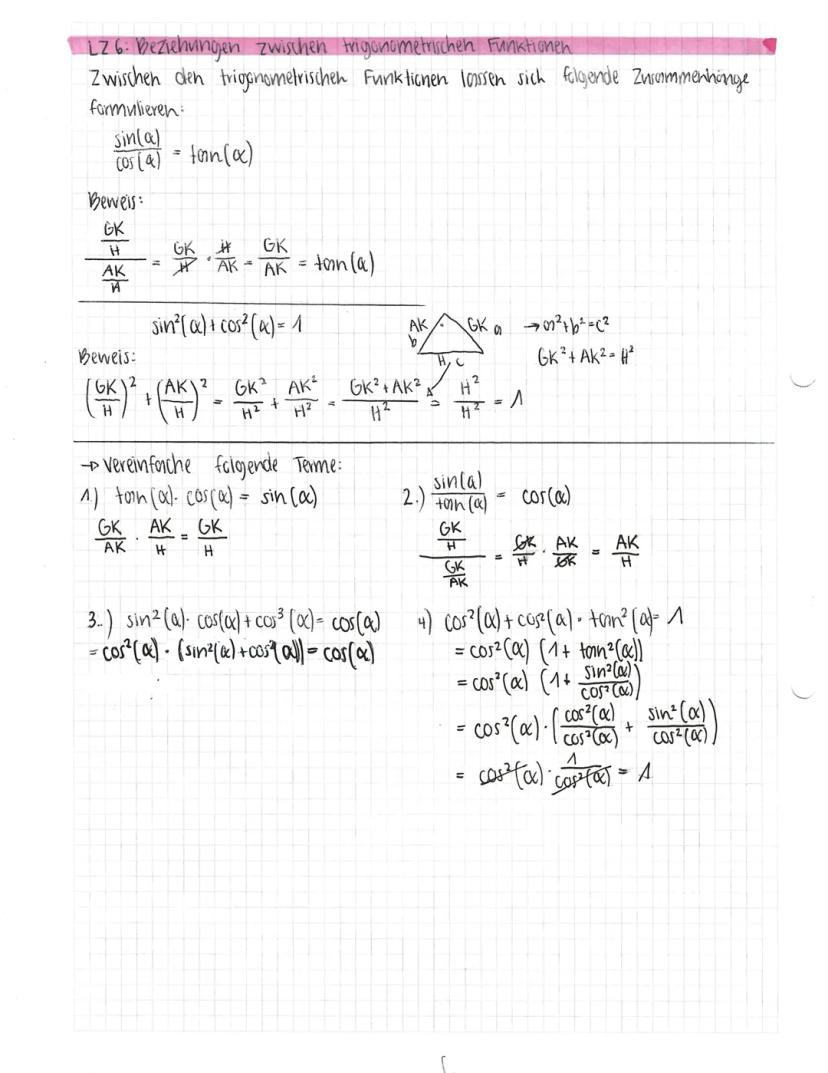 LZ 6: Beziehungen zwischen trigonometrischen Funktionen
Zwischen den trigonometrischen Funktionen lassen sich folgende Zusammenhänge
formulieren:
sin(α)/cos(α) = tan(α)
Beweis:
(GK/H)/(AK/H) = GK/H · H/AK = GK/AK = tan(α)
sin²(α) + cos²(α) = 1
AK b GK a → a²+b²=c²
H, c GK² + AK² = H²
Beweis:
(GK/H)² + (AK/H)² = GK²/H² + AK²/H² = (GK² + AK²)/H² = H²/H² = 1
→ Vereinfache folgende Terme:
1.) tan(α) · cos(α) = sin(α)
GK/AK · AK/H = GK/H
2.) sin(α)/tan(α) = cos(α)
(GK/H)/(GK/AK) = GK/H · AK/GK = AK/H
3.) sin²(α) · cos(α) + cos³(α) = cos(α)
= cos²(α) · (sin²(α) + cos²(α)) = cos(α)
4) cos²(α) + cos²(α) · tan²(α) = 1
= cos²(α) (1 + tan²(α))
= cos²(α) (1 + sin²(α)/cos²(α))
= cos²(α) · (cos²(α)/cos²(α) + sin²(α)/cos²(α))
= cos²(α) · 1/cos²(α) = 1